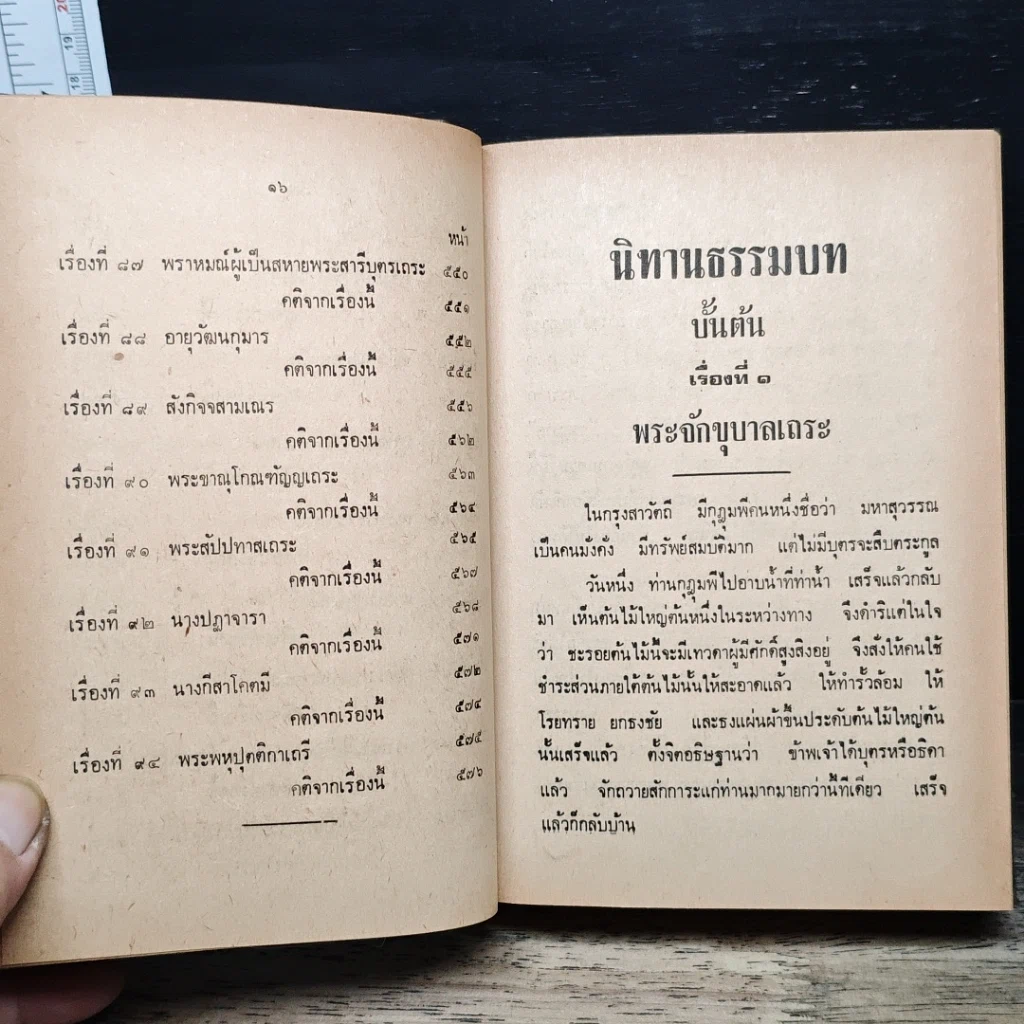 20
19
18
๑๖
หน้า
เรื่องที่ ๘๗ พราหมณ์ผู้เป็นสหายพระสารีบุตรเถระ ๕๕๐
คติจากเรื่องนี้ ๕๕๑
เรื่องที่ ๘๘ อายุวัฒนกุมาร ๕๕๒
คติจากเรื่องนี้ ๕๕๕
เรื่องที่ ๘๙ สังกิจจสามเณร ๕๕๖
คติจากเรื่องนี้ ๕๖๒
เรื่องที่ ๙๐ พระขาณุโกณฑัญญเถระ ๕๖๓
คติจากเรื่องนี้ ๕๖๔
เรื่องที่ ๙๑ พระสัปปทาสเถระ ๕๖๕
คติจากเรื่องนี้ ๕๖๗
เรื่องที่ ๙๒ นางปฏาจารา ๕๖๘
คติจากเรื่องนี้ ๕๗๑
เรื่องที่ ๙๓ นางกีสาโคตมี ๕๗๒
คติจากเรื่องนี้ ๕๗๔
เรื่องที่ ๙๔ พระพหุปุตติกาเถรี ๕๗๕
คติจากเรื่องนี้ ๕๗๖
นิทานธรรมบท
บั้นต้น
เรื่องที่ ๑
พระจักขุบาลเถระ
ในกรุงสาวัตถี มีกุฎุมพีคนหนึ่งชื่อว่า มหาสุวรรณ
เป็นคนมั่งคั่ง มีทรัพย์สมบัติมาก แต่ไม่มีบุตรจะสืบตระกูล
วันหนึ่ง ท่านกุฎุมพีไปอาบน้ำที่ท่าน้ำ เสร็จแล้วกลับ
มา เห็นต้นไม้ใหญ่ต้นหนึ่งในระหว่างทาง จึงดำริแต่ในใจ
ว่า ชะรอยต้นไม้นี้จะมีเทวดาผู้มีศักดิ์สูงสิงอยู่ จึงสั่งให้คนใช้
ชำระส่วนภายใต้ต้นไม้นั้นให้สะอาดแล้ว ให้ทำรั้วล้อม ให้
โรยทราย ยกธงชัย และธงแผ่นผ้าขึ้นประดับต้นไม้ใหญ่ต้น
นั้นเสร็จแล้ว ตั้งจิตอธิษฐานว่า ข้าพเจ้าได้บุตรหรือธิดา
แล้ว จักถวายสักการะแก่ท่านมากมายกว่านี้ทีเดียว เสร็จ
แล้วก็กลับบ้าน